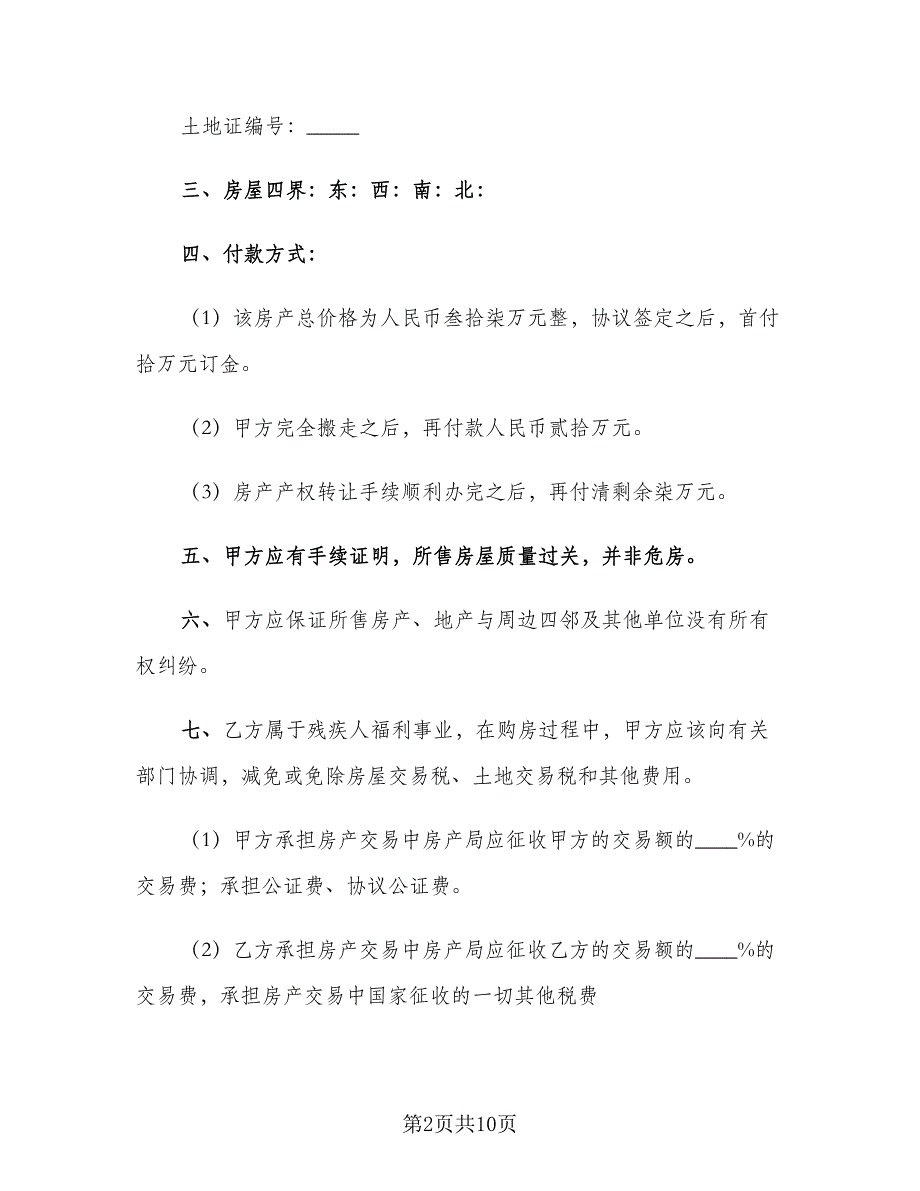 土地证编号：_____
三、房屋四界：东：西：南：北：
四、付款方式：
（1）该房产总价格为人民币叁拾柒万元整，协议签定之后，首付
拾万元订金。
（2）甲方完全搬走之后，再付款人民币贰拾万元。
（3）房产产权转让手续顺利办完之后，再付清剩余柒万元。
五、甲方应有手续证明，所售房屋质量过关，并非危房。
六、甲方应保证所售房产、地产与周边四邻及其他单位没有所有
权纠纷。
七、乙方属于残疾人福利事业，在购房过程中，甲方应该向有关
部门协调，减免或免除房屋交易税、土地交易税和其他费用。
（1）甲方承担房产交易中房产局应征收甲方的交易额的____%的
交易费；承担公证费、协议公证费。
（2）乙方承担房产交易中房产局应征收乙方的交易额的____%的
交易费，承担房产交易中国家征收的一切其他税费
第2页共10页